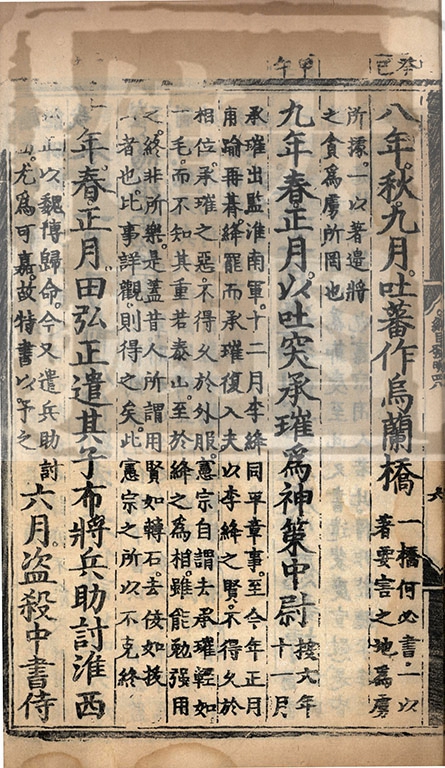 癸巳
甲午
八年。秋。九月。吐蕃作烏蘭橋
一橋何必書。一以
著要害之地爲虜
所據。一以著邊將
之貪爲虜所罔也
九年春正月。以吐突承璀爲神策中尉
按六年
十一月
承璀出監淮南軍。十二月李絳同平章事。至今年正月
甫瑜再朞。絳罷而承璀復入。夫以李絳之賢。不得久於
相位。承璀之惡。不得久於外服。憲宗自謂去承璀輕如
一毛。而不知其重若泰山。至於絳之爲相。雖能勉强用
之。終非所樂。是蓋昔人所謂用賢如轉石。去佞如拔
者也。比事詳觀。則得之矣。此憲宗之所以不克終
年。春。正月。田弘正遣其子布將兵助討淮西
正以魏博歸命。今又遣兵助討
尤爲可嘉。故特書以予之
六月。盜殺中書侍